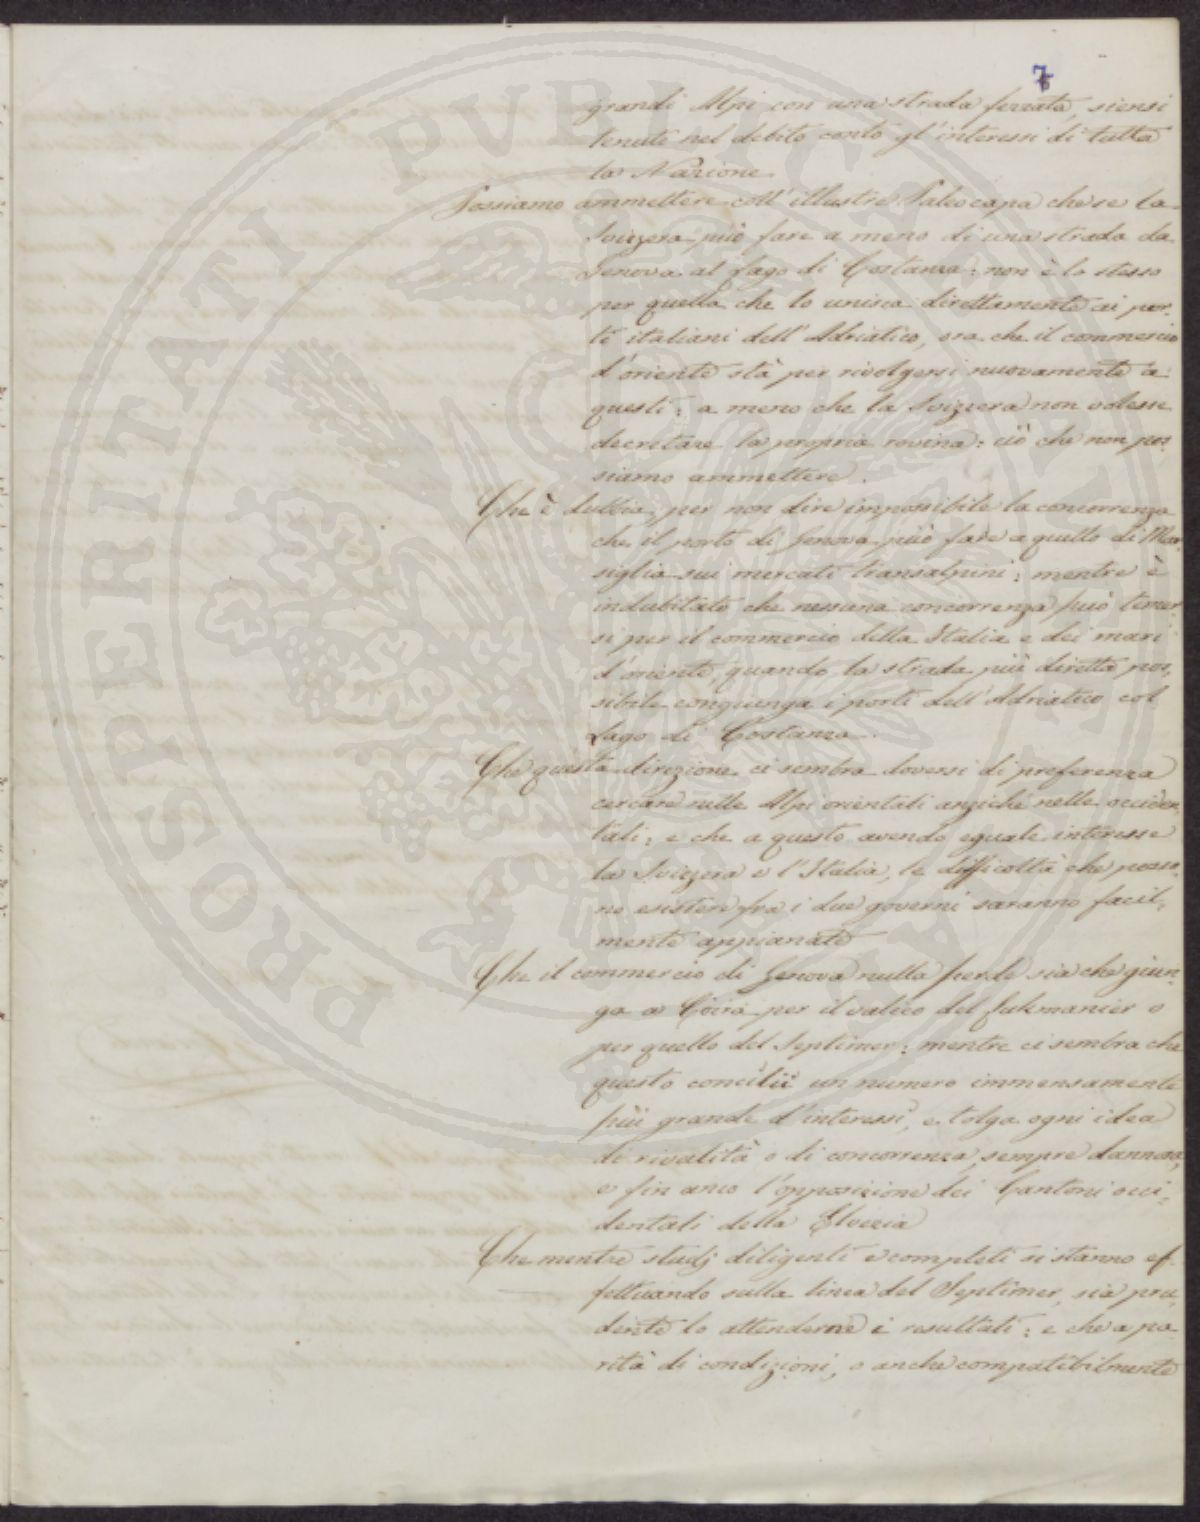 7
grandi Alpi con una strada ferrata, siensi
tenuti nel debito conto gl'interessi di tutta
la Nazione.
Possiamo ammettere coll'illustre Paleocapa che se la
Svizzera può fare a meno di una strada da
Genova al Lago di Costanza: non è lo stesso
per quella che lo unisca direttamente ai por-
ti italiani dell'Adriatico, ora che il commercio
d'oriente stà per rivolgersi nuovamente a
questi; a meno che la Svizzera non volesse
decretare la propria rovina: ciò che non pos-
siamo ammettere.
Che è dubbia, per non dire impossibile la concorrenza
che il porto di Genova può fare a quello di Mar-
siglia sui mercati transalpini; mentre è
indubitato che nessuna concorrenza può temer-
si per il commercio della Italia e dei mari
d'oriente, quando la strada più diretta pos-
sibile congiunga i porti dell'Adriatico col
Lago di Costanza.
Che questa direzione ci sembra doversi di preferenza
cercare nelle Alpi orientali anziché nelle occiden-
tali; e che a questo avendo eguale interesse
la Svizzera e l'Italia, le difficoltà che posso-
no esistere fra i due governi saranno facil-
mente appianate
Che il commercio di Genova nulla perde sia che giun-
ga a Coira per il valico del Lukmanier o
per quello del Septimer; mentre ci sembra che
questo concilii un numero immensamente
più grande d'interessi, e tolga ogni idea
di rivalità o di concorrenza, sempre dannosa,
e fin anco l'opposizione dei Cantoni occi-
dentali della Elvezia
Che mentre studj diligenti e completi si stanno ef-
fettuando sulla linea del Septimer, sia pru-
dente lo attenderne i resultati; e che a pa-
rità di condizioni, o anche compatibilmente
PROSPERITATI PVBLICAE